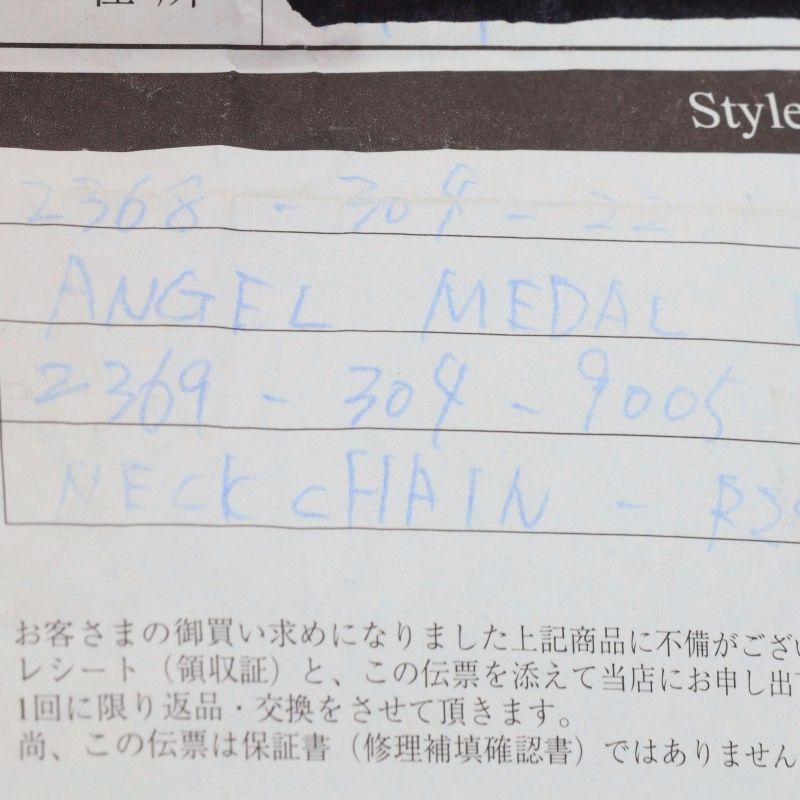 住所
Style
2368 - 304 - 22
ANGEL MEDAL
2369 - 304 - 9005
NECK CHAIN - RS
お客さまの御買い求めになりました上記商品に不備がござい
レシート（領収証）と、この伝票を添えて当店にお申し出
1回に限り返品・交換をさせて頂きます。
尚、この伝票は保証書（修理補填確認書）ではありません